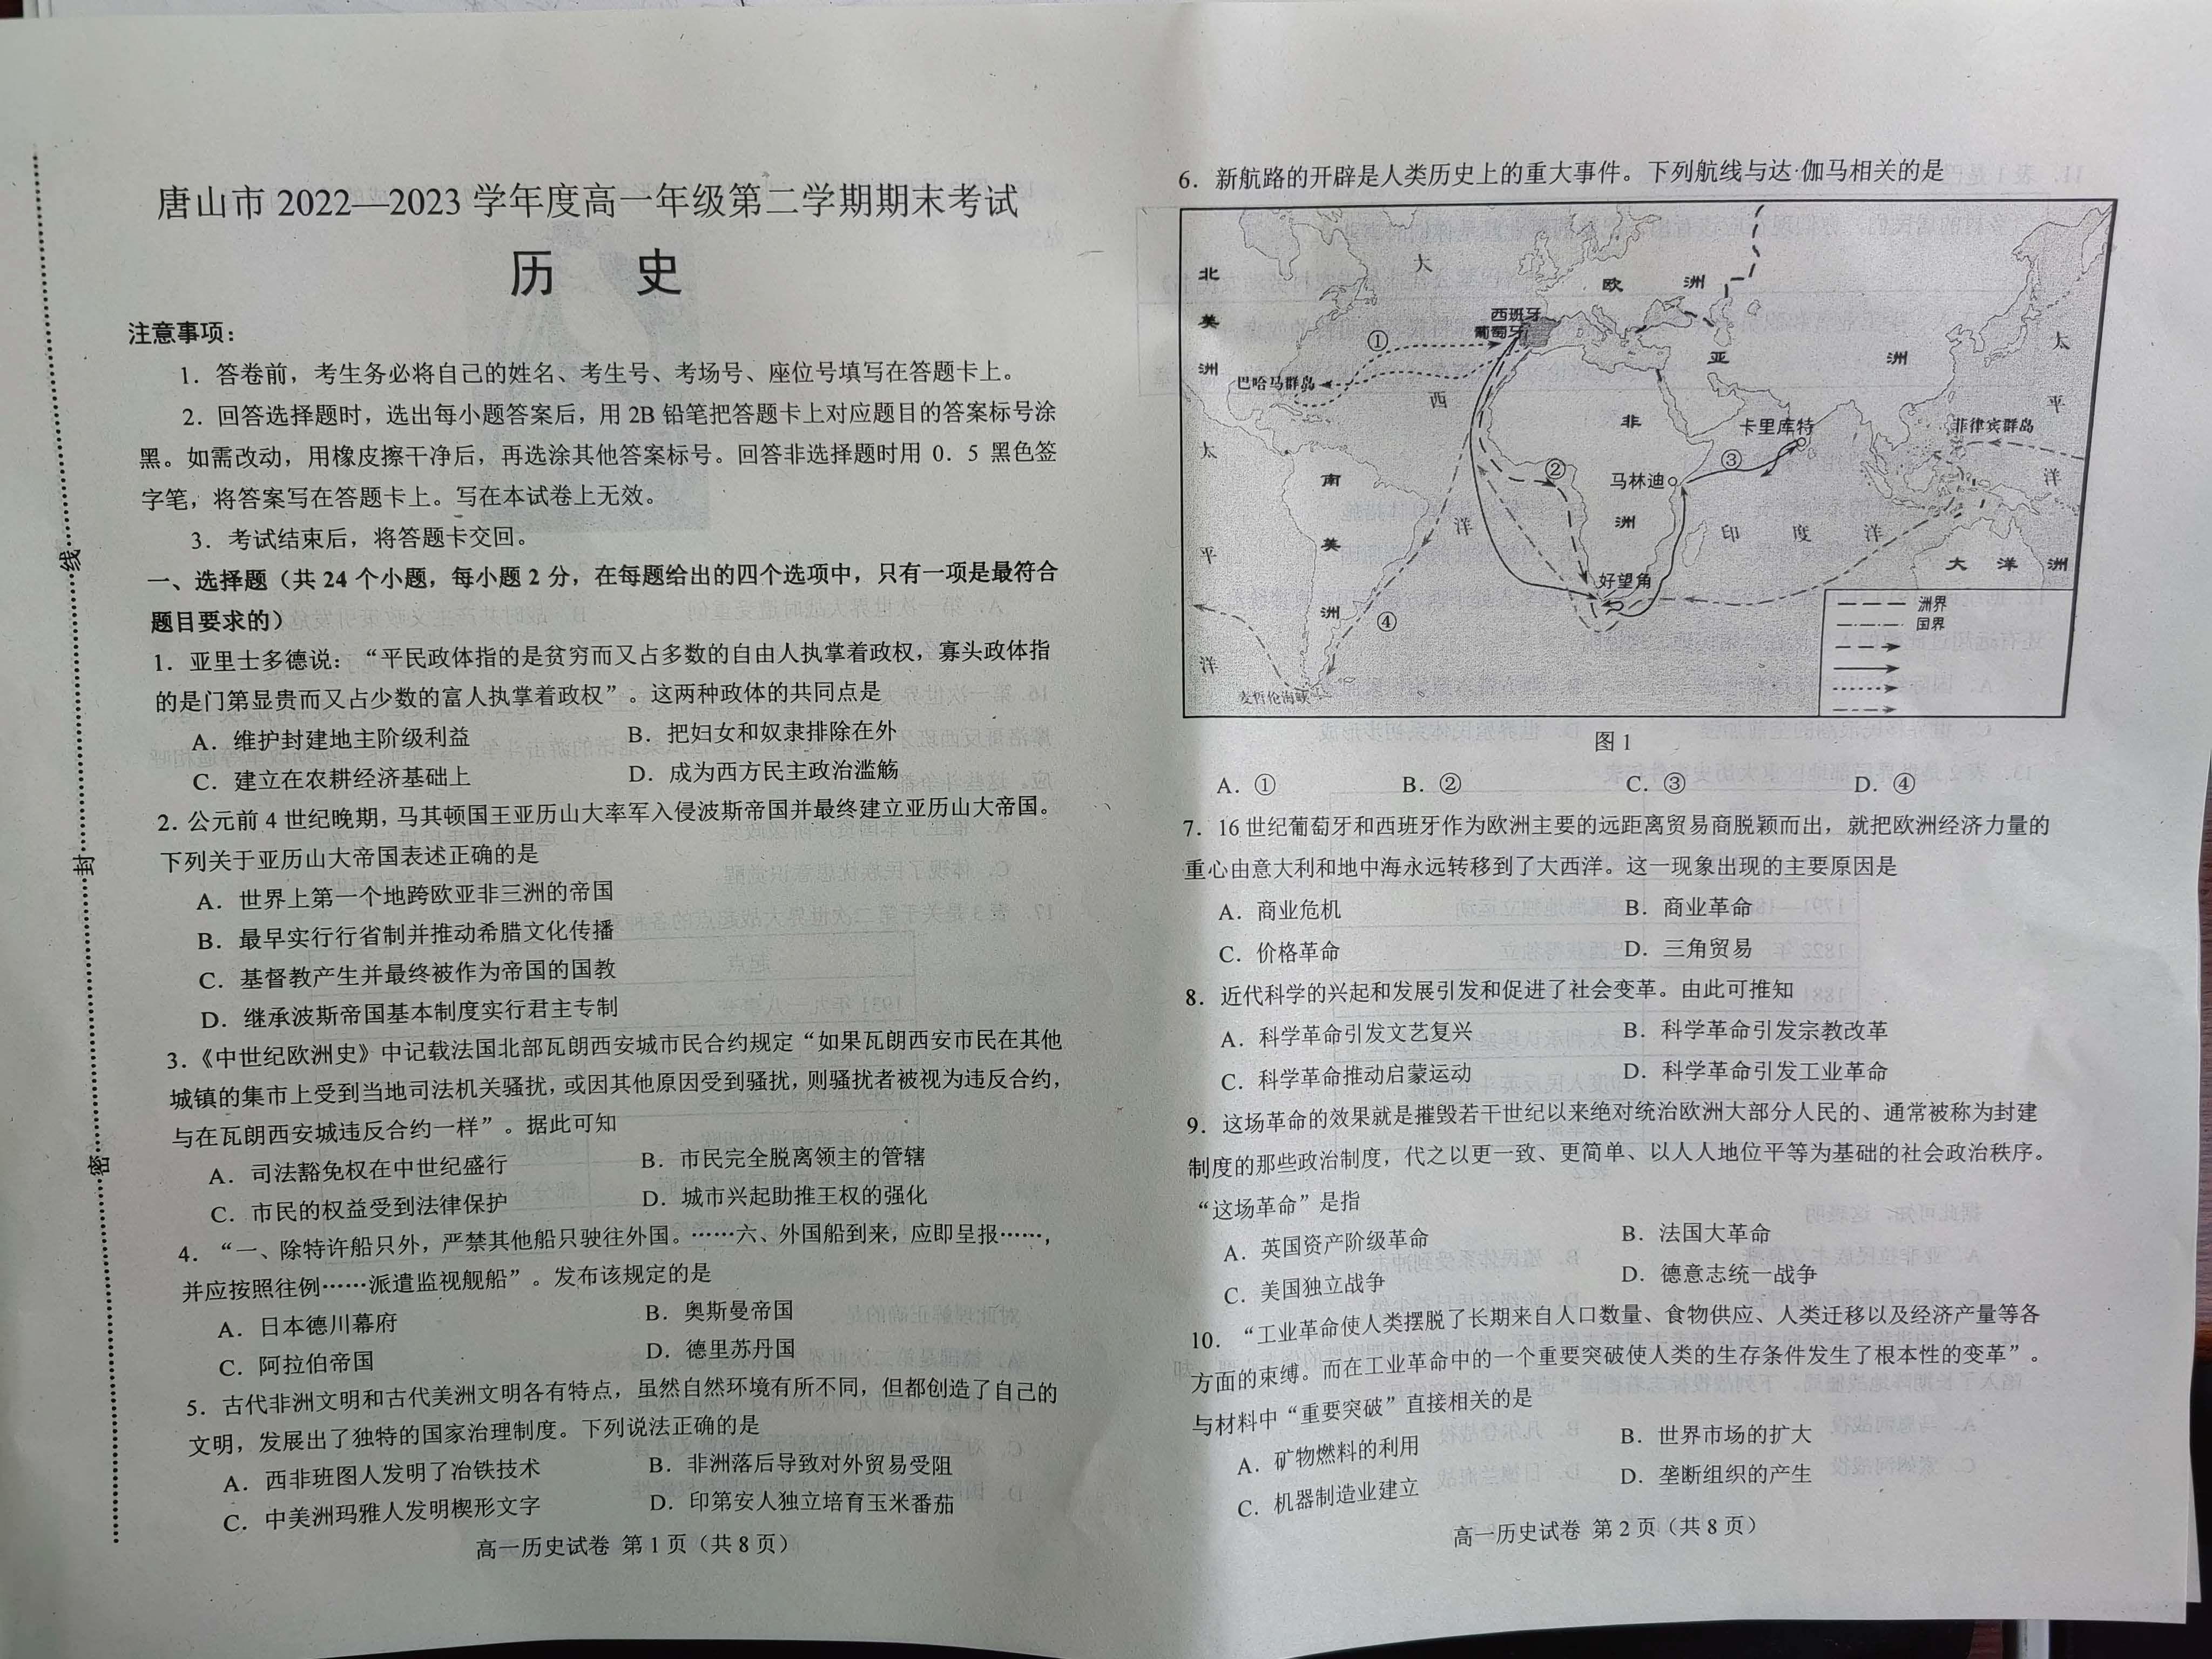 唐山市 2022—2023 学年度高一年级第二学期期末考试
历 史
注意事项：
1．答卷前，考生务必将自己的姓名、考生号、考场号、座位号填写在答题卡上。
2．回答选择题时，选出每小题答案后，用 2B 铅笔把答题卡上对应题目的答案标号涂
黑。如需改动，用橡皮擦干净后，再选涂其他答案标号。回答非选择题时用 0．5 黑色签
字笔，将答案写在答题卡上。写在本试卷上无效。
3．考试结束后，将答题卡交回。
一、选择题（共 24 个小题，每小题 2 分，在每题给出的四个选项中，只有一项是最符合
题目要求的）
1．亚里士多德说：“平民政体指的是贫穷而又占多数的自由人执掌着政权，寡头政体指
的是门第显贵而又占少数的富人执掌着政权”。这两种政体的共同点是
A．维护封建地主阶级利益 B．把妇女和奴隶排除在外
C．建立在农耕经济基础上 D．成为西方民主政治滥觞
2．公元前 4 世纪晚期，马其顿国王亚历山大率军入侵波斯帝国并最终建立亚历山大帝国。
下列关于亚历山大帝国表述正确的是
A．世界上第一个地跨欧亚非三洲的帝国
B．最早实行行省制并推动希腊文化传播
C．基督教产生并最终被作为帝国的国教
D．继承波斯帝国基本制度实行君主专制
3．《中世纪欧洲史》中记载法国北部瓦朗西安城市民合约规定“如果瓦朗西安市民在其他
城镇的集市上受到当地司法机关骚扰，或因其他原因受到骚扰，则骚扰者被视为违反合约，
与在瓦朗西安城违反合约一样”。据此可知
A．司法豁免权在中世纪盛行 B．市民完全脱离领主的管辖
C．市民的权益受到法律保护 D．城市兴起助推王权的强化
4．“一、除特许船只外，严禁其他船只驶往外国。……六、外国船到来，应即呈报……，
并应按照往例……派遣监视舰船”。发布该规定的是
A．日本德川幕府 B．奥斯曼帝国
C．阿拉伯帝国 D．德里苏丹国
5．古代非洲文明和古代美洲文明各有特点，虽然自然环境有所不同，但都创造了自己的
文明，发展出了独特的国家治理制度。下列说法正确的是
A．西非班图人发明了冶铁技术 B．非洲落后导致对外贸易受阻
C．中美洲玛雅人发明楔形文字 D．印第安人独立培育玉米番茄
高一历史试卷 第 1 页（共 8 页）
线
封
密
6．新航路的开辟是人类历史上的重大事件。下列航线与达·伽马相关的是
北美洲
大西洋
欧洲
亚洲
太平洋
西班牙
葡萄牙
①
巴哈马群岛
非洲
卡里库特
菲律宾群岛
太平洋
南美洲
②
马林迪
③
印度洋
好望角
大洋洲
④
麦哲伦海峡
洲界
国界
图 1
A．① B．② C．③ D．④
7．16 世纪葡萄牙和西班牙作为欧洲主要的远距离贸易商脱颖而出，就把欧洲经济力量的
重心由意大利和地中海永远转移到了大西洋。这一现象出现的主要原因是
A．商业危机 B．商业革命
C．价格革命 D．三角贸易
8．近代科学的兴起和发展引发和促进了社会变革。由此可推知
A．科学革命引发文艺复兴 B．科学革命引发宗教改革
C．科学革命推动启蒙运动 D．科学革命引发工业革命
9．这场革命的效果就是摧毁若干世纪以来绝对统治欧洲大部分人民的、通常被称为封建
制度的那些政治制度，代之以更一致、更简单、以人人地位平等为基础的社会政治秩序。
“这场革命”是指
A．英国资产阶级革命 B．法国大革命
C．美国独立战争 D．德意志统一战争
10．“工业革命使人类摆脱了长期来自人口数量、食物供应、人类迁移以及经济产量等各
方面的束缚。而在工业革命中的一个重要突破使人类的生存条件发生了根本性的变革”。
与材料中“重要突破”直接相关的是
A．矿物燃料的利用 B．世界市场的扩大
C．机器制造业建立 D．垄断组织的产生
高一历史试卷 第 2 页（共 8 页）